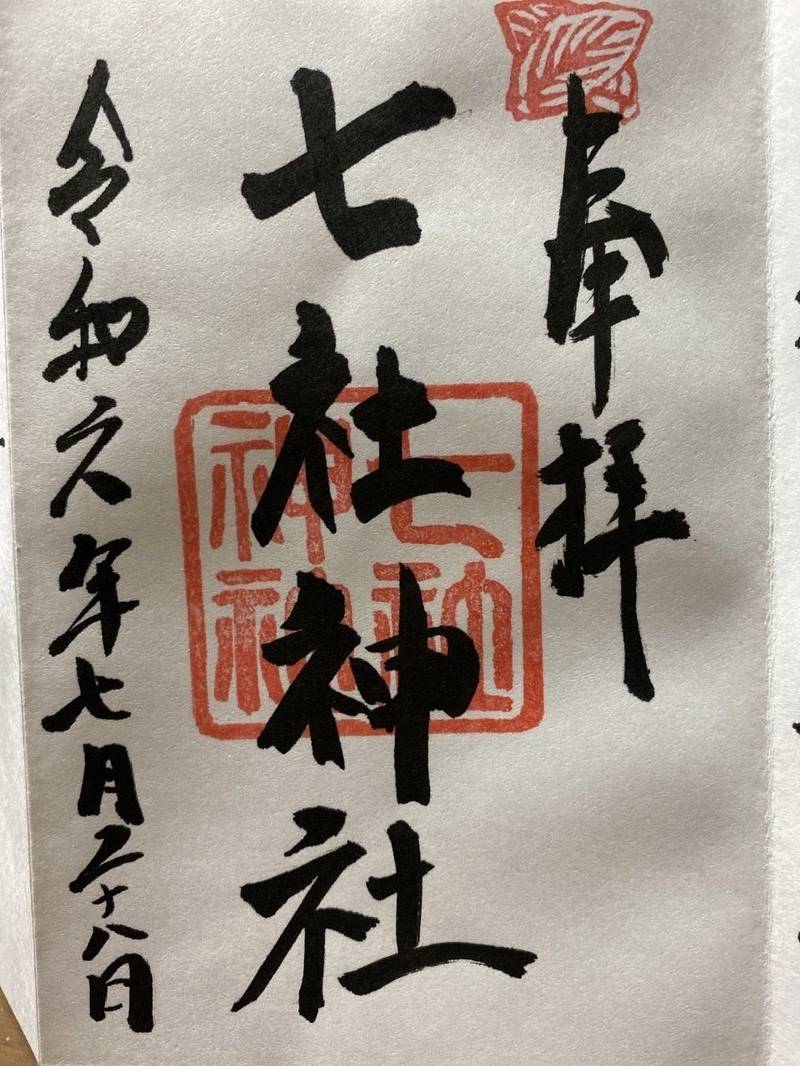 奉拝
七社神社
七社
神社
令和六年七月二十八日